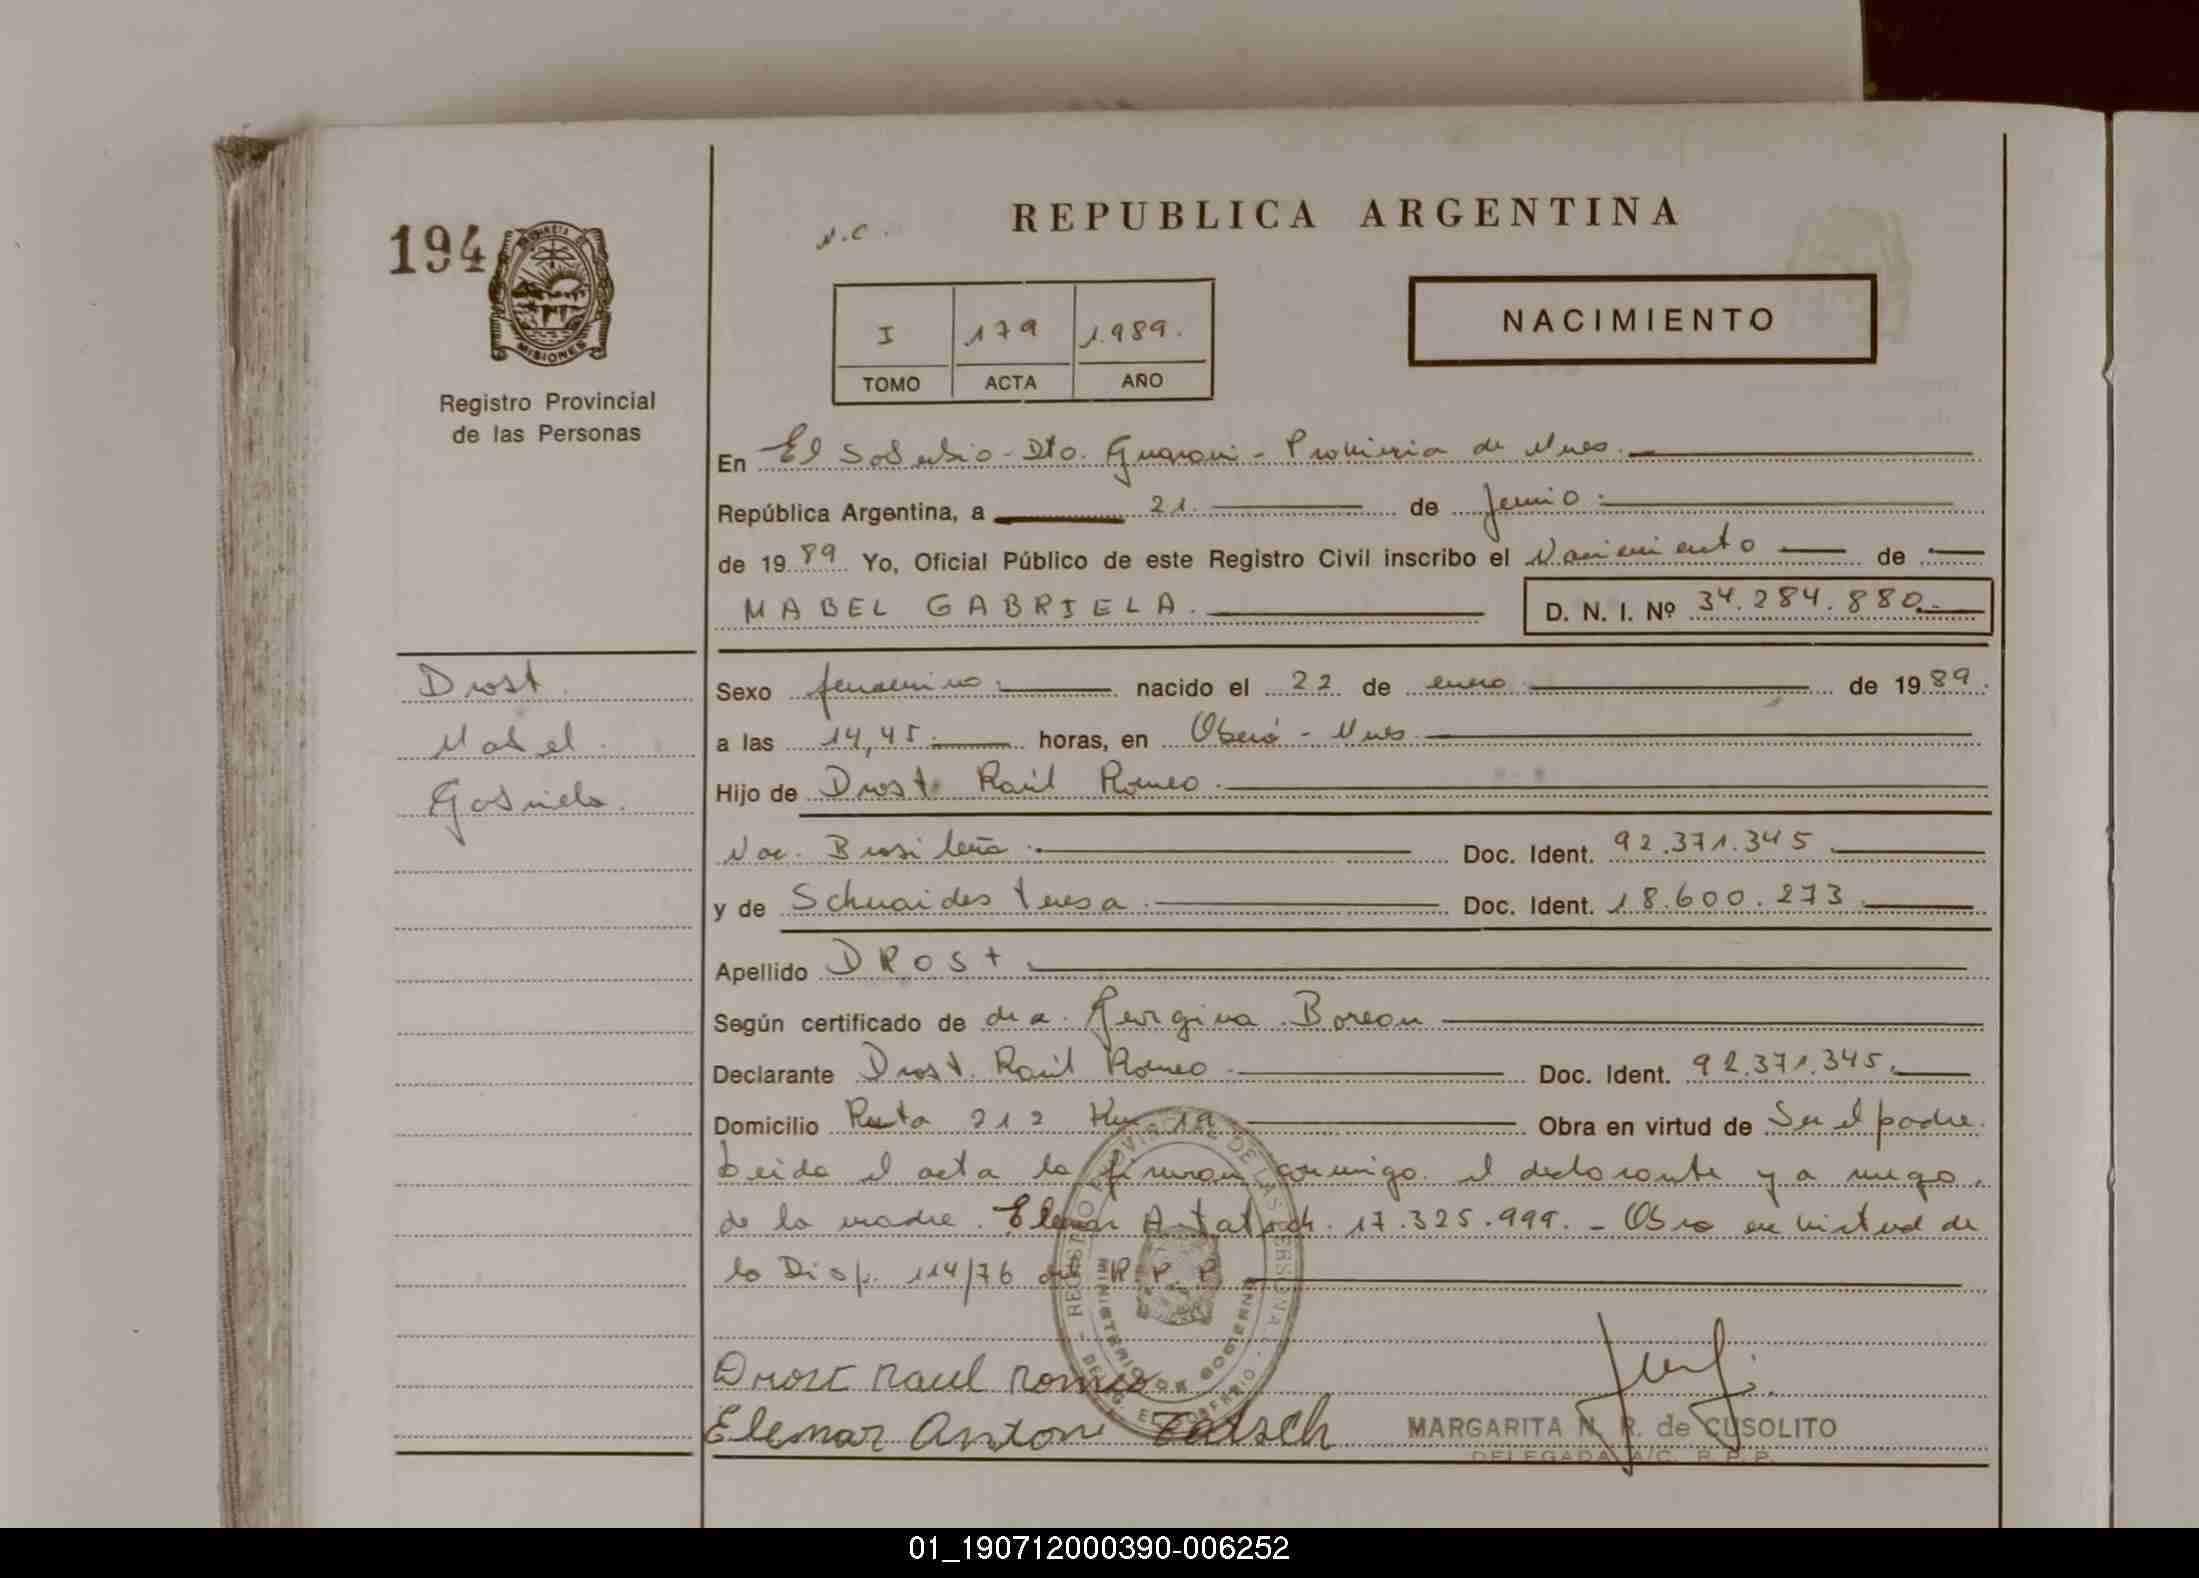 REPUBLICA ARGENTINA
N.C.
194
PROVINCIA DE
MISIONES
Registro Provincial
de las Personas
I 179 1.989.
TOMO ACTA AÑO
NACIMIENTO
En El Soberbio - Dto. Guarani - Provincia de Mnes.
República Argentina, a 21. de Junio.
de 1989 Yo, Oficial Público de este Registro Civil inscribo el Nacimiento de
MABEL GABRIELA. D. N. I. Nº 34.284.880.
Drost.
Mabel.
Gabriela.
Sexo femenino. nacido el 22 de enero de 1989.
a las 14,45. horas, en Oberá - Mnes.
Hijo de Drost Raúl Romeo.
Nac. Brasileña. Doc. Ident. 92.371.345
y de Schnaider Teresa. Doc. Ident. 18.600.273.
Apellido DROST.
Según certificado de dra. Gergina Boreau
Declarante Drost. Raúl Romeo. Doc. Ident. 92.371.345.
Domicilio Ruta 212 Km 19 Obra en virtud de Ser el padre.
Leida el acta la firman conmigo el declarante y a ruego
de la madre. Elemar A. Tatsch. 17.325.999. - Obra en virtud de
la Disp. 114/76 del R.P.P.
REGISTRO PROVINCIAL DE LAS PERSONAS
MINISTERIO DE GOBIERNO
DELEG. EL SOBERBIO
Drost Raul Romeo
Elemar Anton Tatsch
MARGARITA N. R. de CUSOLITO
DELEGADA A/C. R. P. P.
01_190712000390-006252